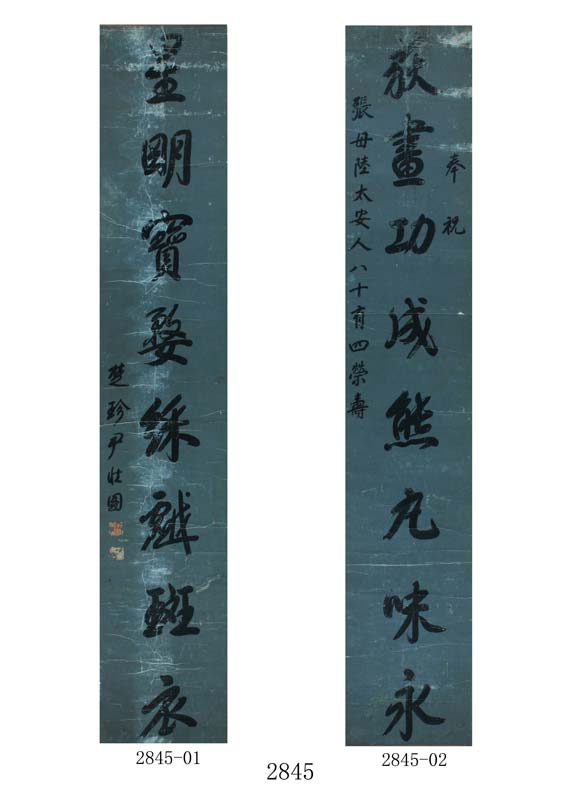 荻畫功成熊丸味永
奉祝
張母陸太安人八十有四榮壽
星明寶婺綵戲斑衣
楚珍尹壯圖
2845-01
2845
2845-02